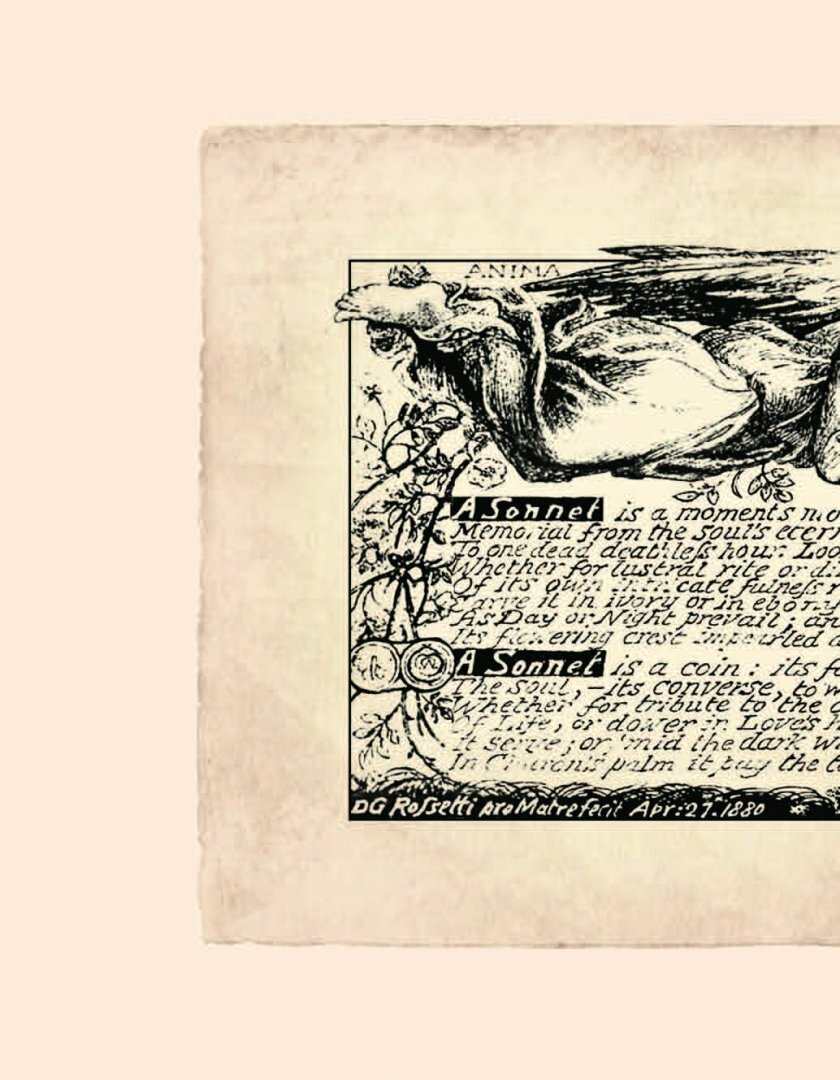 ANIMA
A Sonnet is a moments mo
Memorial from the soul's etern
To one dead deathleſs hour. Loo
Whether for lustral rite or di
Of its own intricate fulneſs r
Carve it in ivory or in ebony
As Day or Night prevail; an
Its flowering crest impearled a
A Sonnet is a coin: its fa
The soul,—its converse, to w
Whether for tribute to the a
Of Life, or dower in Love's h
It serve; or, 'mid the dark wh
In Charon's palm it pay the to
DG Roſsetti pro Matre fecit Apr: 27. 1880